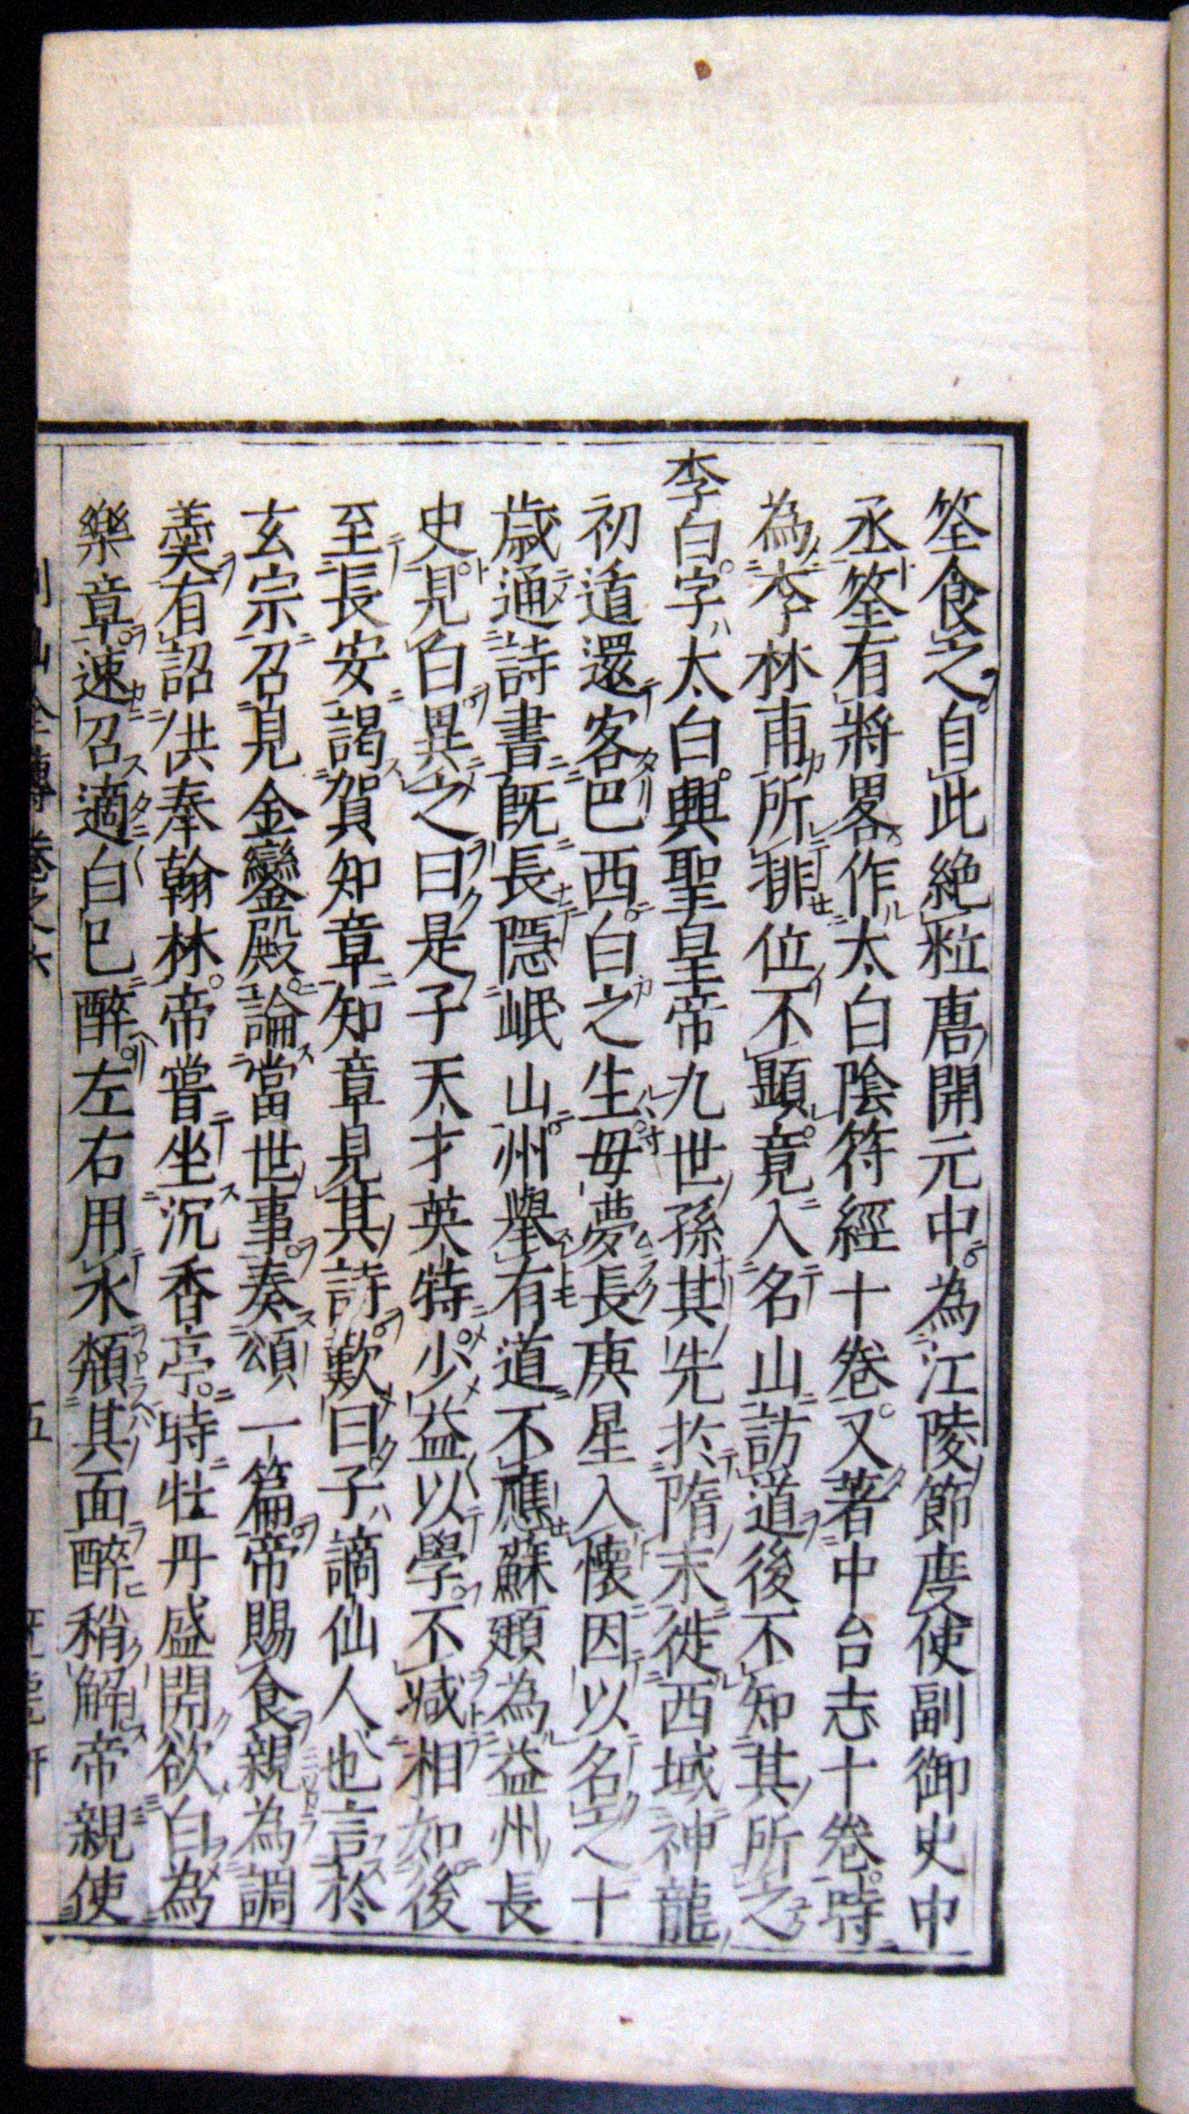 筌食之自此絶粒唐開元中為江陵節度使副御史中
丞筌有將畧作太白陰符經十卷又著中台志十卷時
為李林甫所排位不顯竟入名山訪道後不知其所之
李白字太白興聖皇帝九世孫其先於隋末徙西域神龍
初遁還客巴西白之生母夢長庚星入懷因以名之十
歳通詩書既長隱岷山州舉有道不應蘇頲為益州長
史見白異之曰是子天才英特少益以學不減相如後
至長安謁賀知章知章見其詩歎曰子謫仙人也言於
玄宗召見金鑾殿論當世事奏頌一篇帝賜食親為調
羮有詔洪奉翰林帝嘗坐沉香亭時牡丹盛開欲白為
樂章速召適白已醉左右用水頮其面醉稍解帝親使